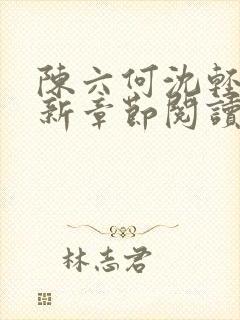 陳六何沈輕
新章節閱讀
林志君